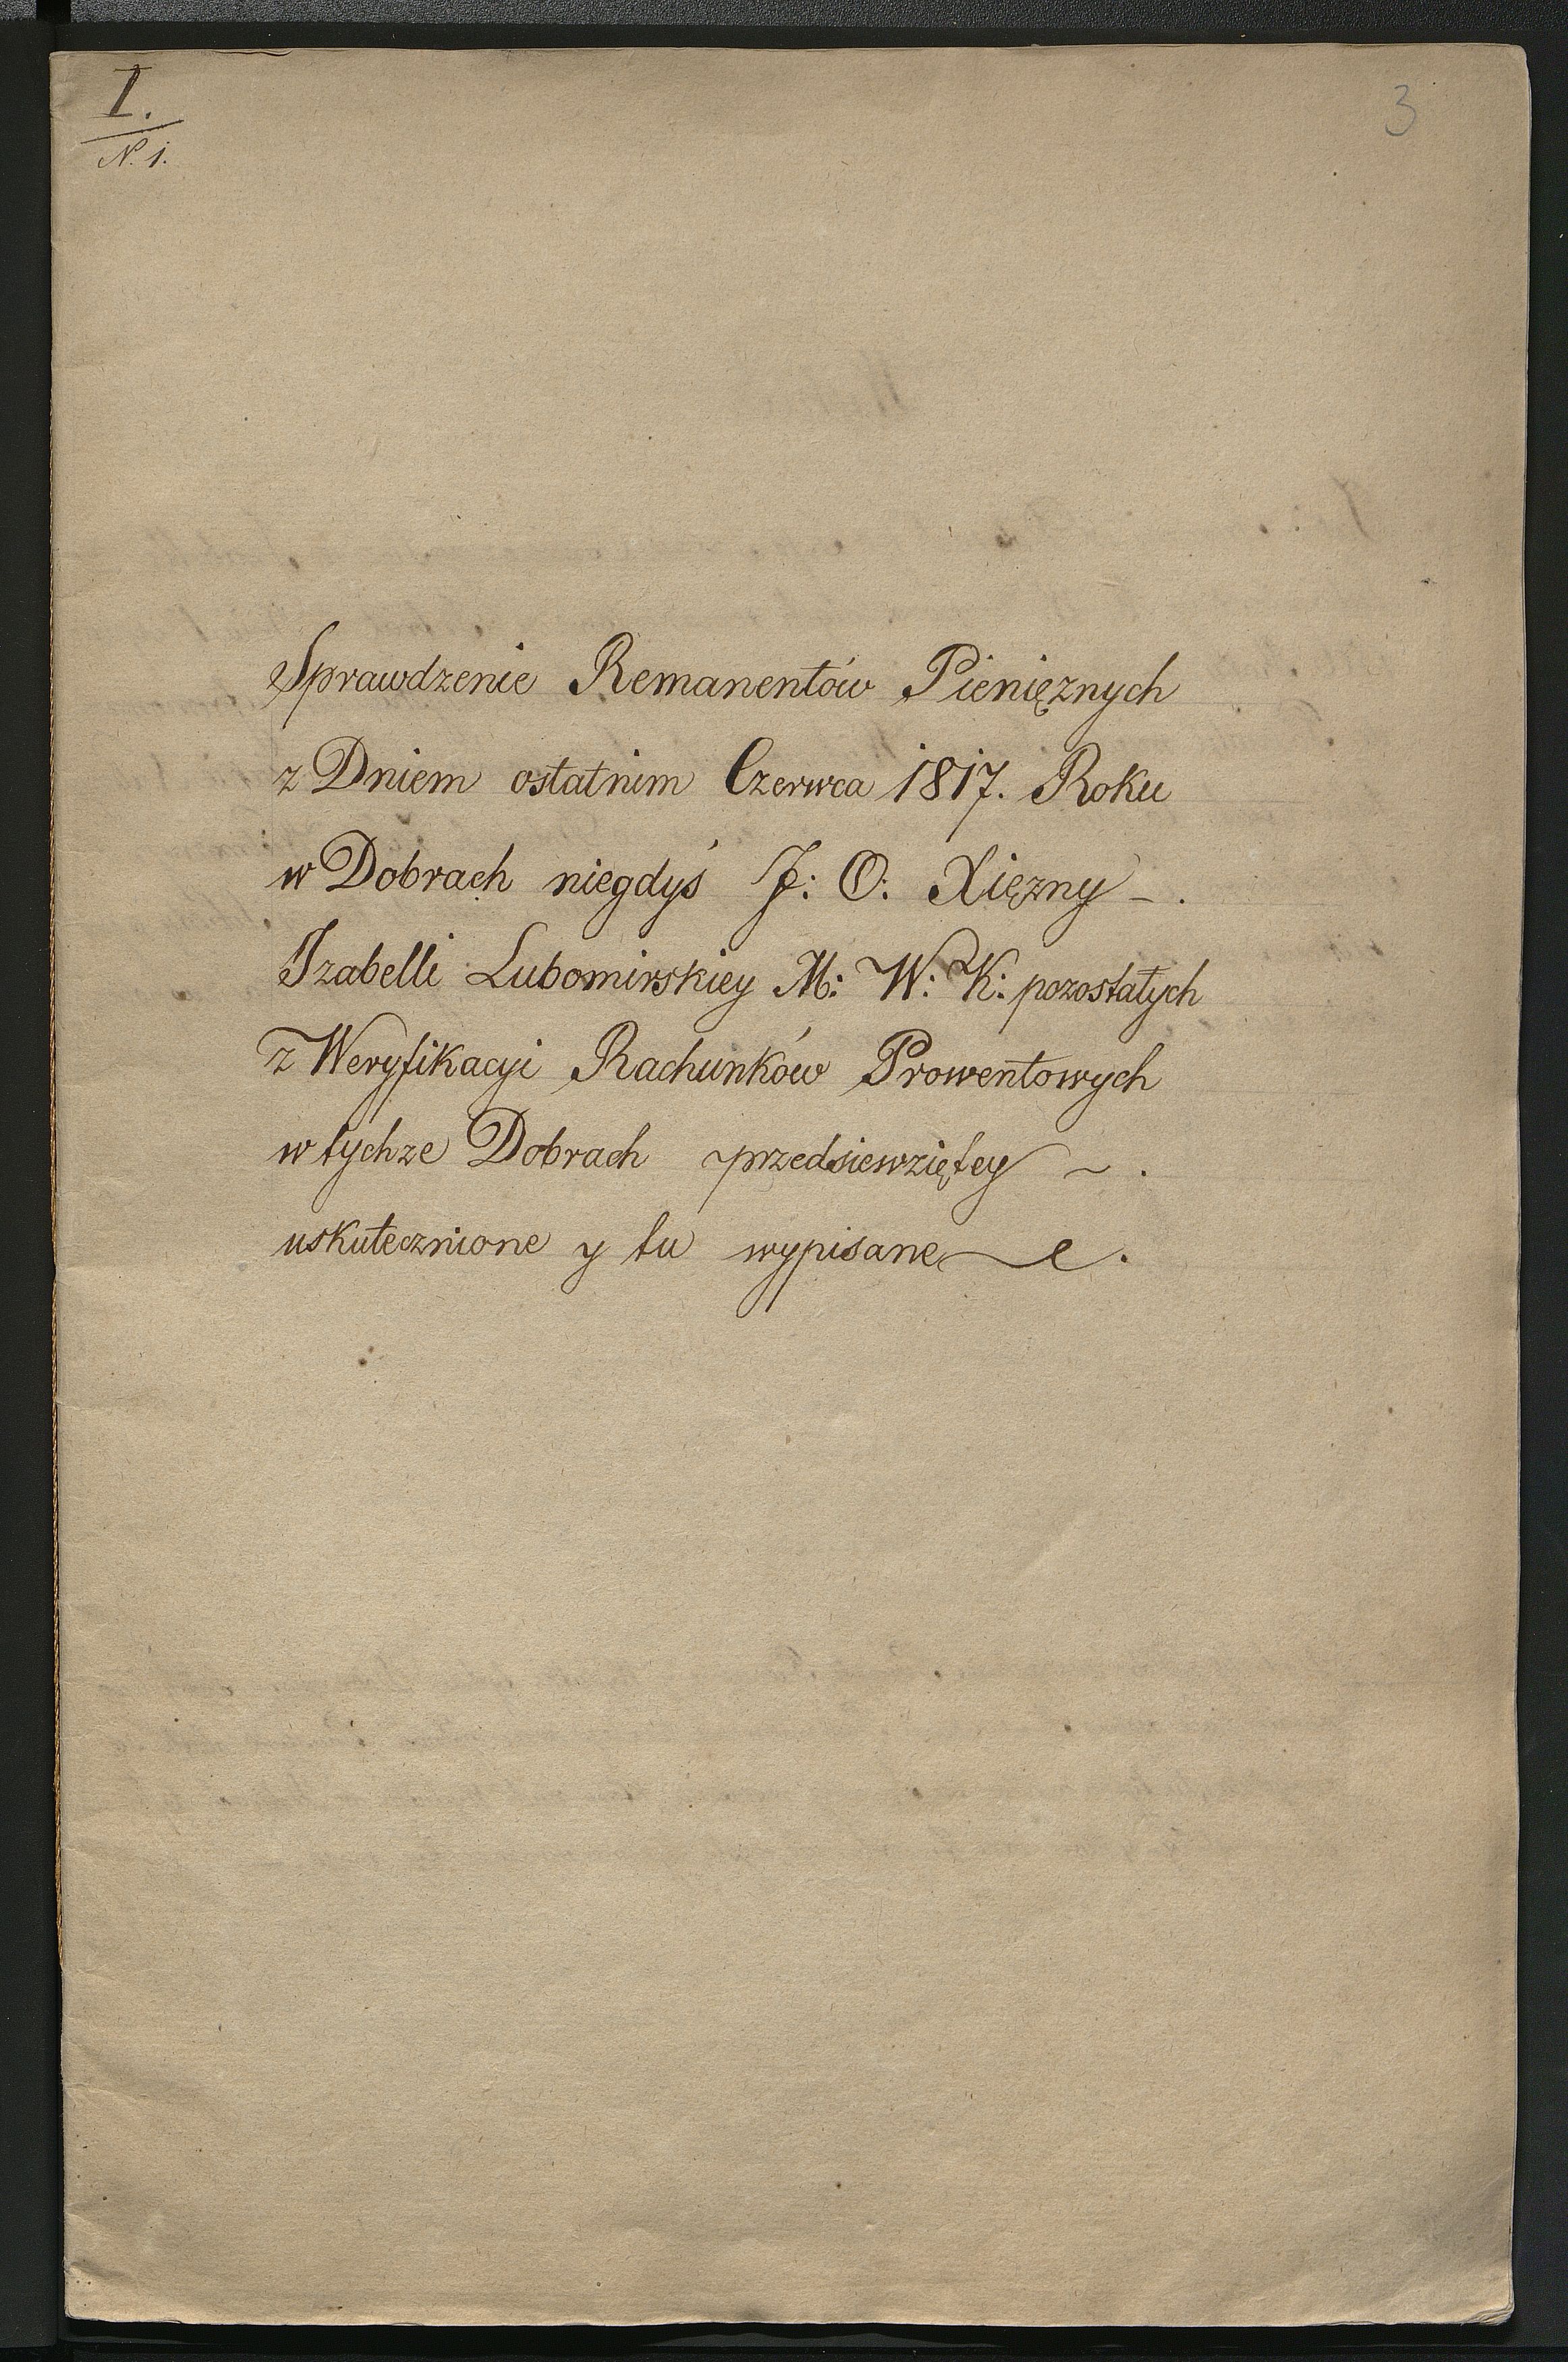 I.
N. 1.
3
Sprawdzenie Remanentów Pienięznych
z Dniem ostatnim Czerwca 1817. Roku
w Dobrach niegdyś J: O: Xięzny - .
Izabelli Lubomirskiey M: W: K: pozostałych
z Weryfikacyi Rachunków Prowentowych
w tychze Dobrach przedsiewziętey ~ .
uskutecznione y tu wypisane